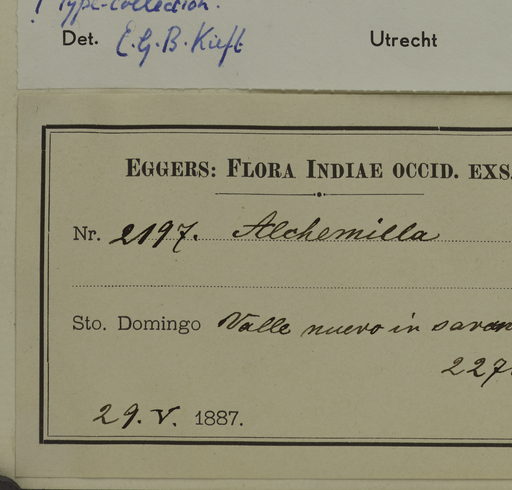 ! Type-collection.
Det. E.G.B. Kieft Utrecht
EGGERS: FLORA INDIAE OCCID. EXS.
Nr. 2197. Alchemilla
Sto. Domingo Valle nuevo in savan
227
29. V. 1887.